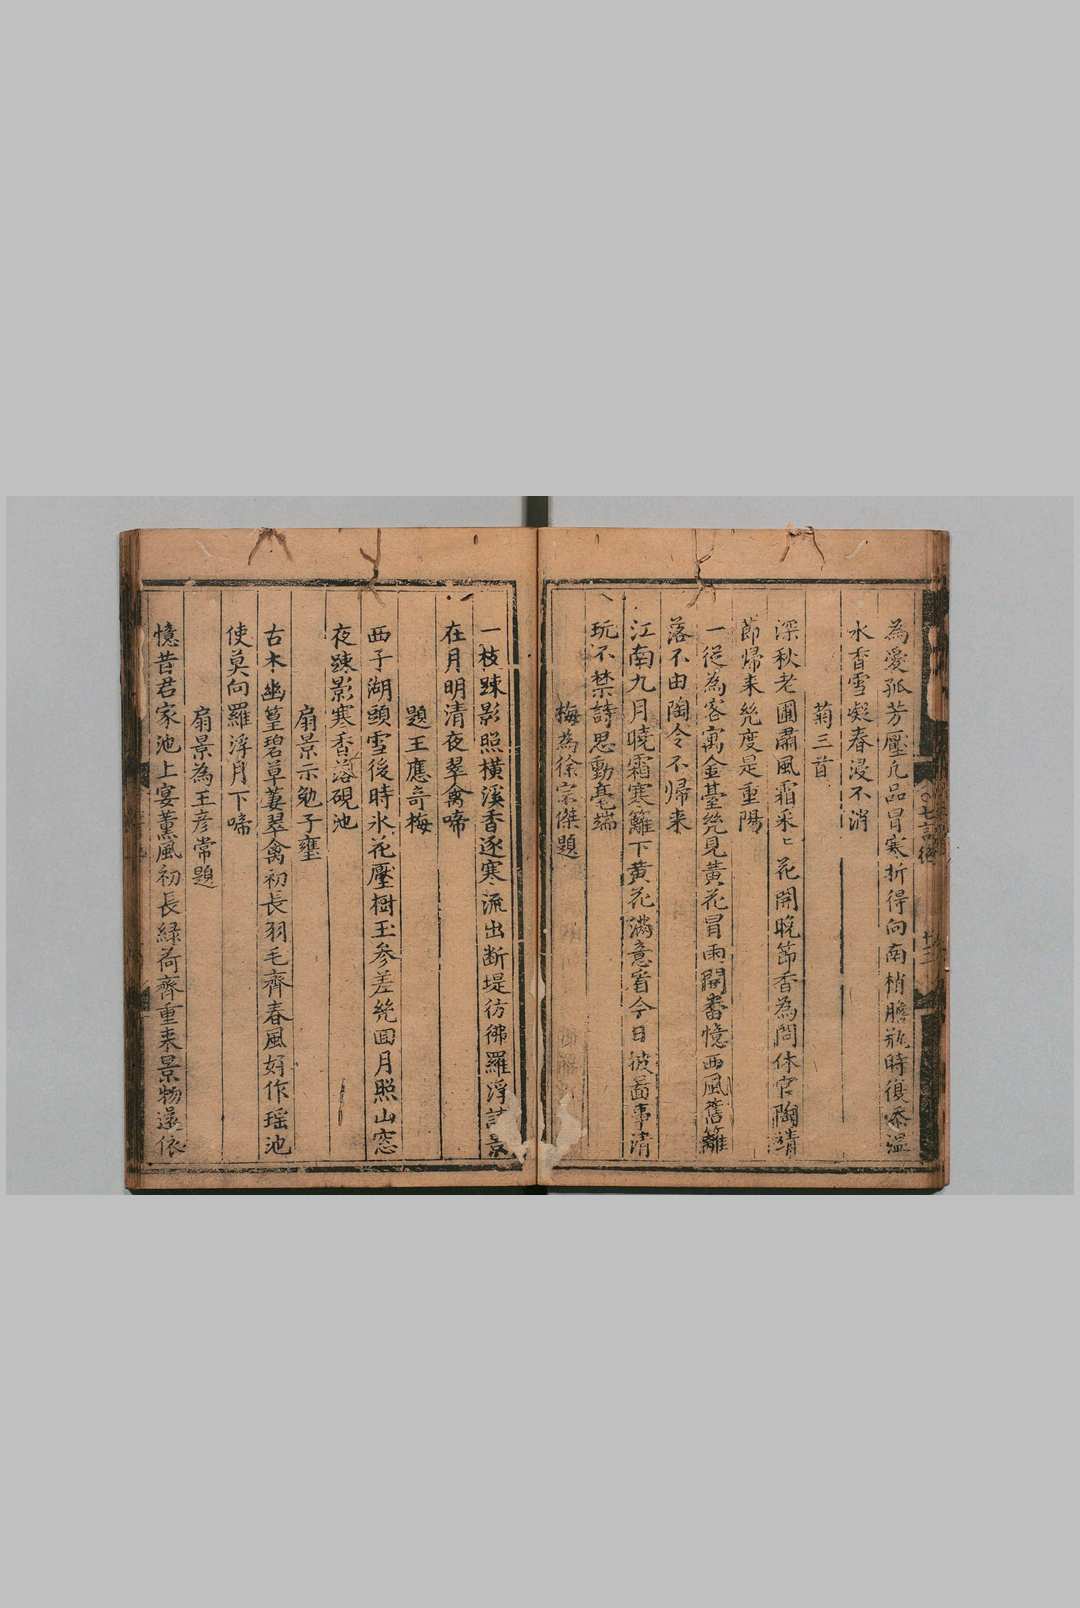 為愛孤芳壓凢品冒寒折得向南梢膽瓶時復添溫
水香雪凝春浸不消
菊三首
深秋老圃肅風霜采〻花開晚節香為問休官陶靖
節歸来㡬度是重陽
一從為客寓金基㡬見黄花冒雨開番憶西風舊籬
落不由陶令不歸来
江南九月曉霜寒籬下黄花滿意看今日披啚事清
玩不禁詩思動毫端
梅為徐宗傑題
一枝踈影照横溪香逐寒流出断堤彷彿羅浮詩景
在月明清夜翠禽啼
題王應竒梅
西子湖頭雪後時氷花壓樹玉參差㡬囬月照山窓
夜踈影寒香落硯池
扇景示勉子壅
古木幽篁碧草萋翠禽初長羽毛齊春風好作瑶池
使莫向羅浮月下啼
扇景為王彦常題
憶昔君家池上宴薫風初長緑荷齊重来景物遂依